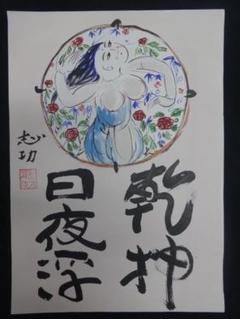 乾坤
日夜浮
志功